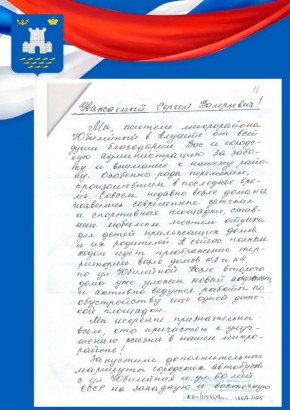 Уважаемый Сергей Валерьевич!
Мы, жители микрорайона
Юбилейный в Алуште от всей
души благодарим Вас и городс-
кую администрацию за забо-
ту и внимание к нашему райо-
ну. Особенно рады переменам,
произошедшим в последнее вре-
мя. Совсем недавно возле дома №2
появились современные детская
и спортивная площадки, став-
шие любимым местом отдыха
для детей прилегающих домов
и их родителей. А сейчас полным
ходом идет преображение тер-
ритории возле домов №2 и №4,
по ул. Юбилейной. Возле второго
дома уже уложен новый асфальт
и активно ведутся работы по
обустройству еще одной детс-
кой площадки.
Мы искренне признательны
всем, кто причастен к улуч-
шению жизни в нашем микро-
районе!
Запустите дополнительные
маршруты городских автобусов
с ул. Юбилейная и ул. 60 лет
СССР на западную и восточную